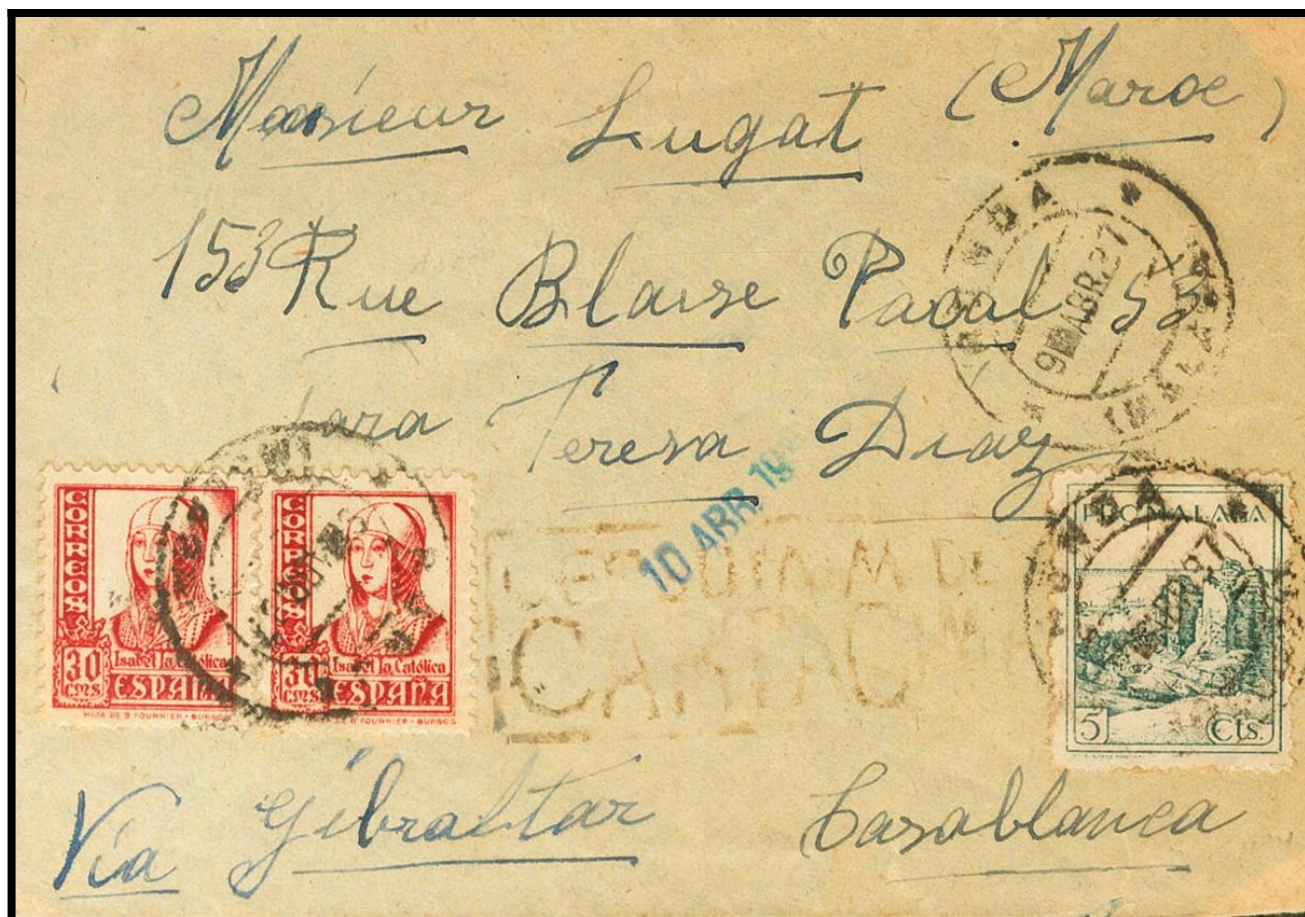 Monsieur Lugat (Maroc)
153 Rue Blaise Pascal 53
para Teresa Diaz
RONDA
(MALAGA)
9 ABR.37
10 ABR. 19
CORREOS
30
CMS
Isabel la Católica
ESPAÑA
HIJA DE B FOURNIER - BURGOS
CORREOS
30
CMS
Isabel la Católica
ESPAÑA
FOURNIER - BURGOS
RONDA
PRO MALAGA
5 Cts.
Via Gibraltar Casablanca